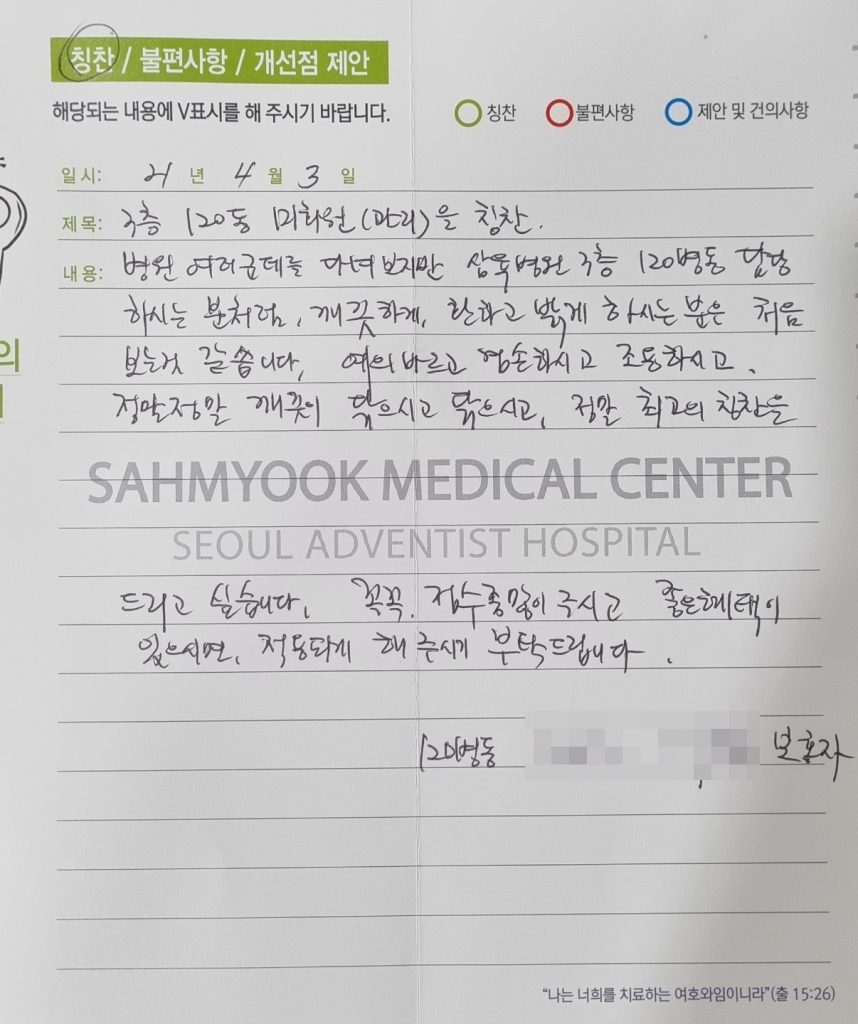 칭찬 / 불편사항 / 개선점 제안
해당되는 내용에 V표시를 해 주시기 바랍니다.
칭찬 불편사항 제안 및 건의사항
일시: 21 년 4 월 3 일
제목: 3층 120동 미화원(관리)을 칭찬.
내용: 병원 여러군데를 다녀 보지만 삼육병원 3층 120병동 담당
하시는 분처럼, 깨끗하게, 환하고 밝게 하시는 분은 처음
보는것 같습니다, 예의바르고 겸손하시고 조용하시고.
정말정말 깨끗이 닦으시고 닦으시고, 정말 최고의 칭찬을
SAHMYOOK MEDICAL CENTER
SEOUL ADVENTIST HOSPITAL
드리고 싶습니다, 꼭꼭. 점수좀많이 주시고 좋은혜택이
있으시면, 적용되게 해 주시기 부탁드립니다.
120병동 보호자
의
"나는 너희를 치료하는 여호와임이니라"(출 15:26)